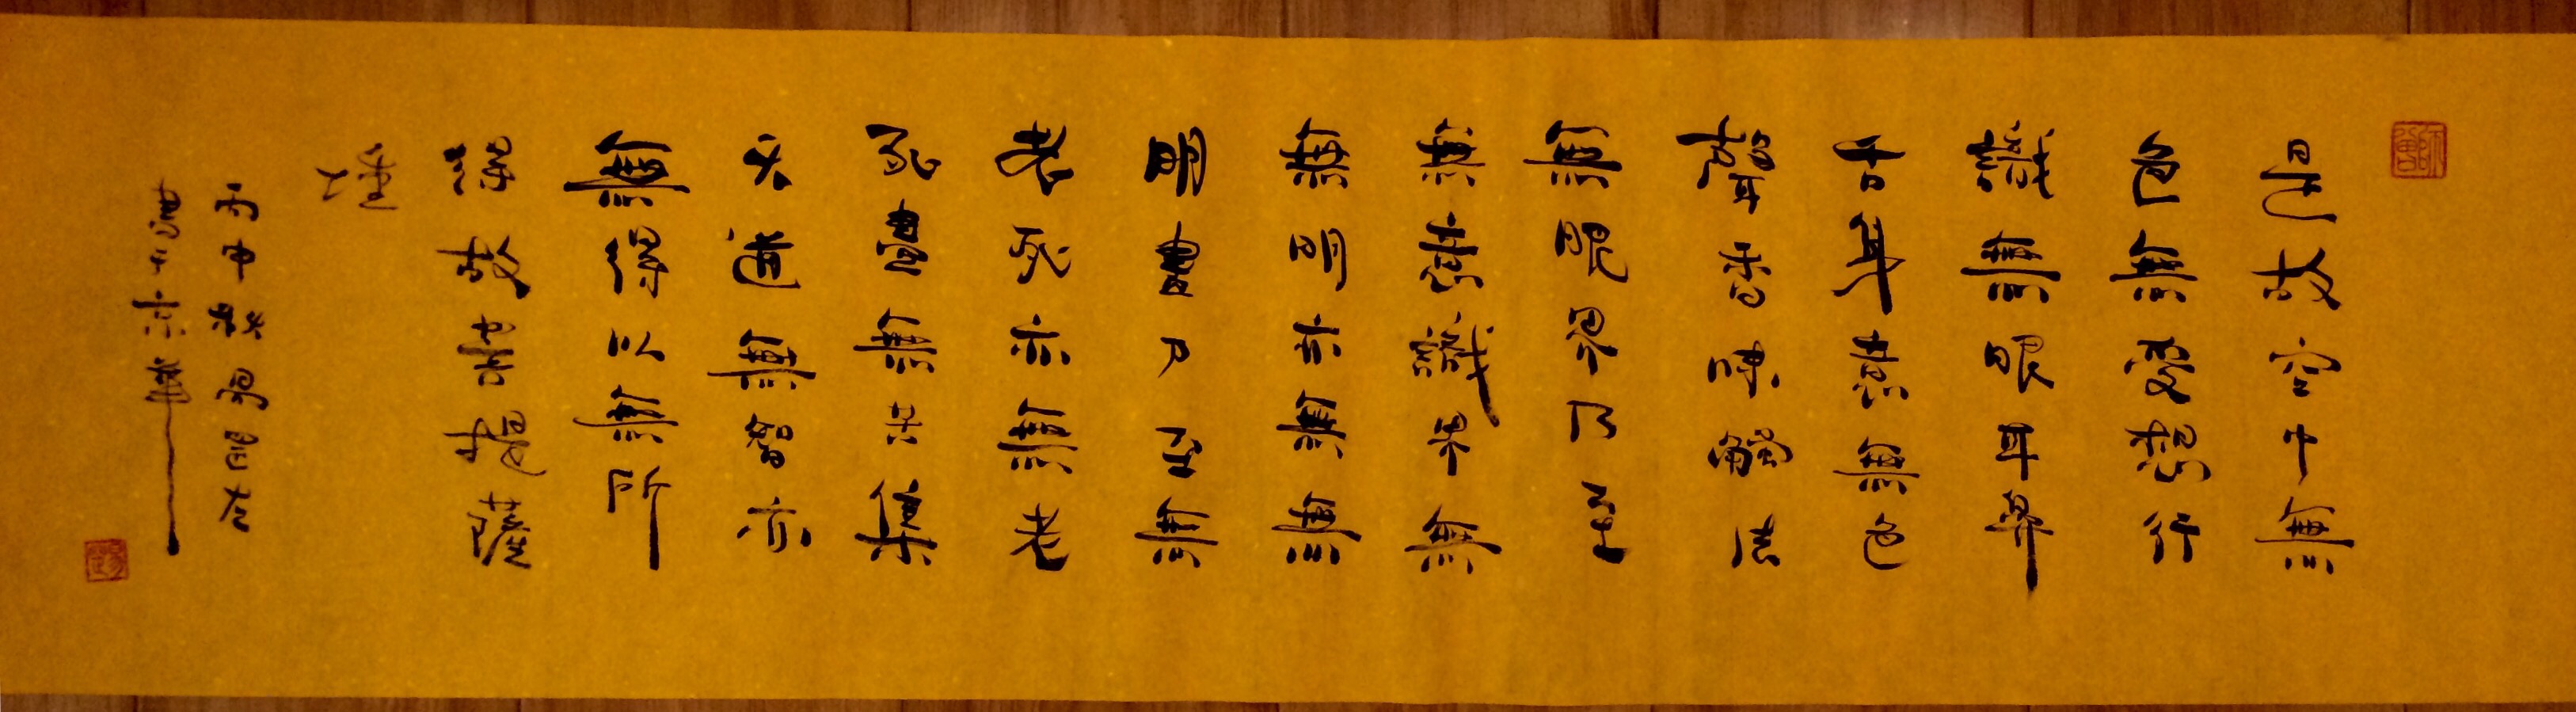 是故空中無
色無受想行
識無眼耳鼻
舌身意無色
聲香味觸法
無眼界乃至
無意識界無
無明亦無無
明盡乃至無
老死亦無老
死盡無苦集
滅道無智亦
無得以無所
得故菩提薩
埵
丙申秋易昌左
書于京華